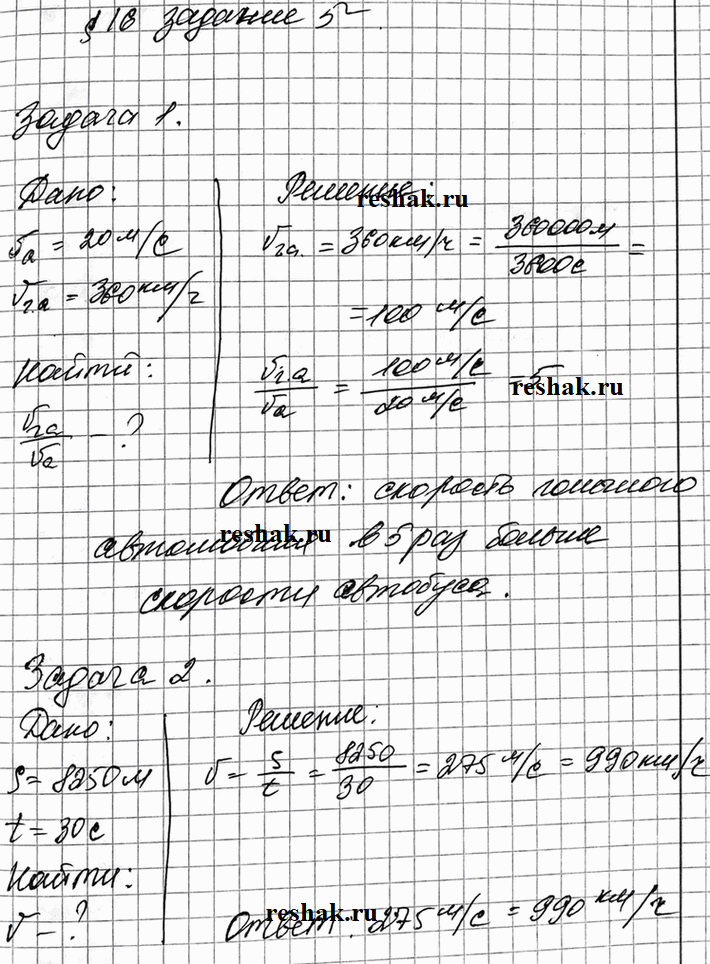 § 18 задание 5
Задача 1.
Дано:
vа = 20 м/с
vг.а = 360 км/ч
Найти:
vга/vа - ?
Решение:
reshak.ru
vга = 360 км/ч = 360000м/3600с =
= 100 м/с
vг.а/vа = 100 м/с / 20 м/с = 5
reshak.ru
Ответ: скорость гоночного
автомобиля в 5 раз больше
reshak.ru
скорости автобуса.
Задача 2.
Дано:
s = 8250 м
t = 30 с
Найти:
v - ?
Решение:
v = s/t = 8250/30 = 275 м/с = 990 км/ч
reshak.ru
Ответ: 275 м/с = 990 км/ч